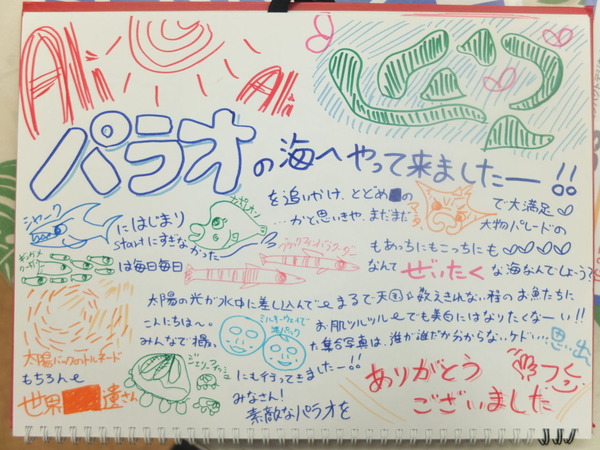 Alii
Alii
パラオの海へやって来ましたー!!
シャーク
にはじまり
ナポレオン
を追いかけ、とどめの
マンタ
で大満足
startにすぎなかった
…かと思いきや、まだまだ
大物パレードの
ギンガメ
は毎日毎日
ブラックフィンバラクーダー
もあっちにもこっちにも
なんてぜいたくな海なんでしょう?
太陽の光が水中に差し込んで まるで天国☆数えきれない程のお魚たちに
こんにちは〜。
ミルキーウェイで
泥パック
お肌ツルツル でも美白にはなりたくなーい!!
みんなで撮った集合写真は、誰が誰だか分からない、ケド…思い出
太陽バックのトルネード
もちろん
世界 遺さん
ジェリーフィッシュ
にも行ってきましたー!!
みなさん!
素敵なパラオを
ありがとう
ございました